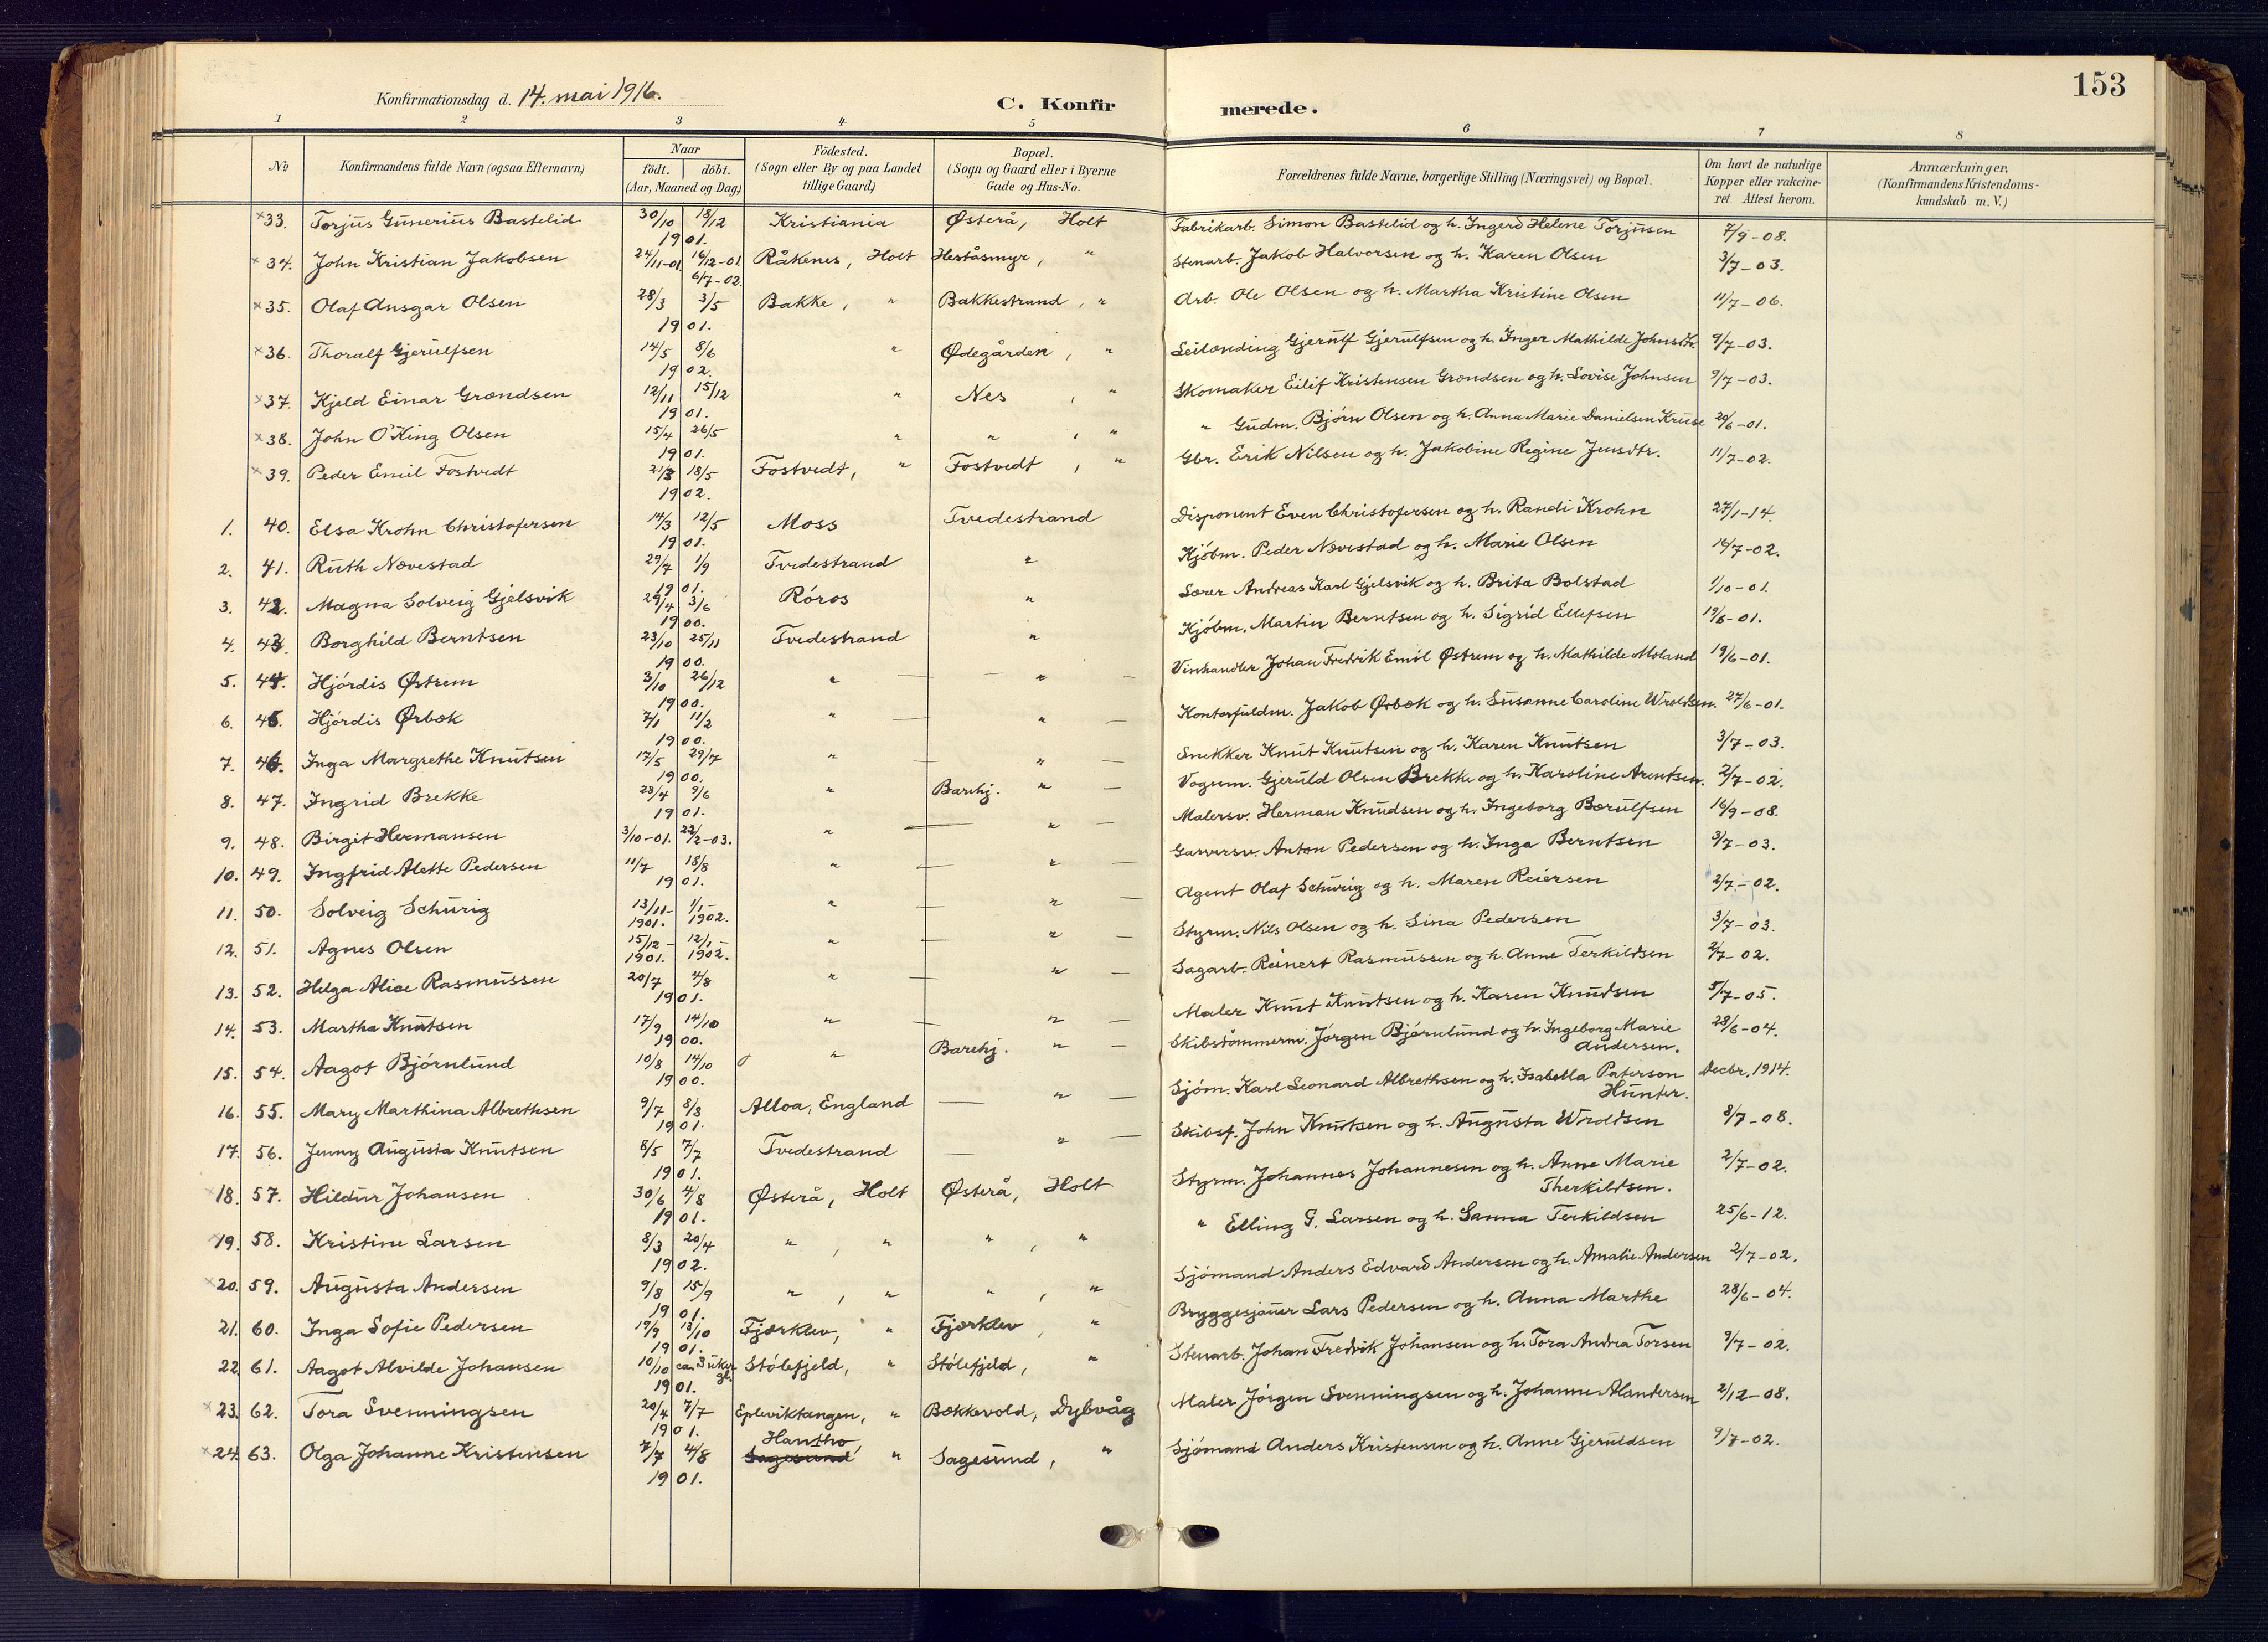 153
Konfirmationsdag d. 14. mai 1916.
C. Konfirmerede.
1 2 3 4 5 6 7 8
No Konfirmandens fulde Navn (ogsaa Efternavn) Naar födt. döbt. (Aar, Maaned og Dag) Födested. (Sogn eller By og paa Landet tillige Gaard) Bopæl. (Sogn og Gaard eller i Byerne Gade og Hus-No. Forældrenes fulde Navne, borgerlige Stilling (Næringsvei) og Bopæl. Om havt de naturlige Kopper eller vakcineret. Attest herom. Anmærkninger, (Konfirmandens Kristendomskundskab m. V.)
×33. Torjus Gunerius Bastelid 30/10 18/12 1901. Kristiania Østerå, Holt Fabrikarb. Simon Bastelid og h. Ingerd Helene Torjusen 7/9-08.
×34. John Kristian Jakobsen 24/11-01 16/12-01 6/7-02. Råkenes, Holt Heståsmyr, " Stenarb. Jakob Halvorsen og h. Karen Olsen 3/7-03.
×35. Olaf Ansgar Olsen 28/3 3/5 1901. Bakke, " Bakkestrand, " Arb. Ole Olsen og h. Martha Kristine Olsen 11/7-06.
×36. Thoralf Gjerulfsen 14/5 8/6 1902. " Ødegården, " Leilænding Gjerulf Gjerulfsen og h. Inger Mathilde Johnsdtr. 9/7-03.
×37. Kjeld Einar Grændsen 12/11 15/12 1901. " Nes, " Skomaker Eilif Kristensen Grændsen og h. Lovise Johnsen 9/7-03.
×38. John O'King Olsen 15/4 26/5 1901. " ", " " Gudm. Bjørn Olsen og h. Anna Marie Danielsen Kruse 20/6-01.
×39. Peder Emil Fostvedt 21/3 18/5 1902. Fostvedt, " Fostvedt, " Gbr. Erik Nilsen og h. Jakobine Regine Jensdtr. 11/7-02.
1. 40. Elsa Krohn Christofersen 14/3 12/5 1901. Moss Tvedestrand Disponent Even Christofersen og h. Randi Krohn 27/1-14.
2. 41. Ruth Nævestad 29/7 1/9 1901. Tvedestrand " Kjøbm. Peder Nævestad og h. Marie Olsen 16/7-02.
3. 42. Magna Solveig Gjelsvik 29/4 3/6 1900. Röros " Lærer Andreas Karl Gjelsvik og h. Brita Bolstad 1/10-01.
4. 43. Borghild Berntsen 23/10 25/11 1900. Tvedestrand " Kjøbm. Martin Berntsen og h. Sigrid Ellefsen 19/6-01.
5. 44. Hjördis Østrem 3/10 26/12 1900. " — " — Vinhandler Johan Fredrik Emil Østrem og h. Mathilde Moland 19/6-01.
6. 45. Hjördis Ørbæk 7/1 11/2 1900. " — " — Kontorfuldm. Jakob Ørbæk og h. Susanne Caroline Wroldsen. 27/6-01.
7. 46. Inga Margrethe Knutsen 17/5 29/7 1900. " — " — Snekker Knut Knutsen og h. Karen Knutsen 3/7-03.
8. 47. Ingrid Brekke 28/4 9/6 1901. " Barehj. " — Vognm. Gjeruld Olsen Brekke og h. Karoline Arentsen. 2/7-02.
9. 48. Birgit Hermansen 3/10-01. 22/2-03. " — " Malersv. Herman Knudsen og h. Ingeborg Børulfsen 16/9-08.
10. 49. Ingfrid Alette Pedersen 11/7 18/8 1901. " — " — Garversv. Anton Pedersen og h. Inga Berntsen 3/7-03.
11. 50. Solveig Schürig 13/11-1901. 1/1-1902. " — " — Agent Olaf Schürig og h. Maren Reiersen 2/7-02.
12. 51. Agnes Olsen 15/12-1901. 12/1-1902. " — " — Styrm. Nils Olsen og h. Lina Pedersen 3/7-03.
13. 52. Helga Alice Rasmussen 20/7 4/8 1901. " — " — Sagarb. Reinert Rasmussen og h. Anne Terkildsen 2/7-02.
14. 53. Martha Knutsen 17/9 14/10 1900. " — " — Maler Knut Knutsen og h. Karen Knudsen 5/7-05.
15. 54. Aagot Bjørnlund 10/8 14/10 1900. " Barehj. " — Skibstømmerm. Jørgen Bjørnlund og h. Ingeborg Marie Andersen. 28/6-04.
16. 55. Mary Marthina Albrethsen 9/7 8/8 1901. Alloa, England — " — Sjøm. Karl Leonard Albrethsen og h. Isabella Paterson Hunter. Decbr. 1914.
17. 56. Jenny Augusta Knutsen 8/5 7/7 1901. Tvedestrand — " — Skibsf. John Knutsen og h. Augusta Wroldsen 8/7-08.
18. 57. Hildur Johansen 30/6 4/8 1901. Østerå, Holt Østerå, Holt Styrm. Johannes Johannesen og h. Anne Marie Therkildsen. 2/7-02.
19. 58. Kristine Larsen 8/3 20/4 1902. ", " ", " " Elling G. Larsen og h. Sanna Terkildsen 25/6-12.
×20. 59. Augusta Andersen 9/8 15/9 1901. ", " ", " Sjømand Anders Edvard Andersen og h. Amalie Andersen 2/7-02.
21. 60. Inga Sofie Pedersen 19/9 13/10 1901. Fjærklev, " Fjærklev, " Bryggesjauer Lars Pedersen og h. Anna Marthe 28/6-04.
22. 61. Aagot Alvilde Johansen 10/10 ca. 3 uker gl. 1901. Stölefjeld, " Stölefjeld, " Stenarb. Johan Fredrik Johansen og h. Tora Andrea Torsen 9/7-02.
×23. 62. Tora Svenningsen 20/4 7/7 1901. Epleviktangen, " Bækkevold, Dybvåg Maler Jørgen Svenningsen og h. Johanne Alandersen 2/12-08.
×24. 63. Olga Johanne Kristensen 7/7 4/8 1901. Hantho Sagesund " Sagesund, " Sjømand Anders Kristensen og h. Anne Gjeruldsen 9/7-02.